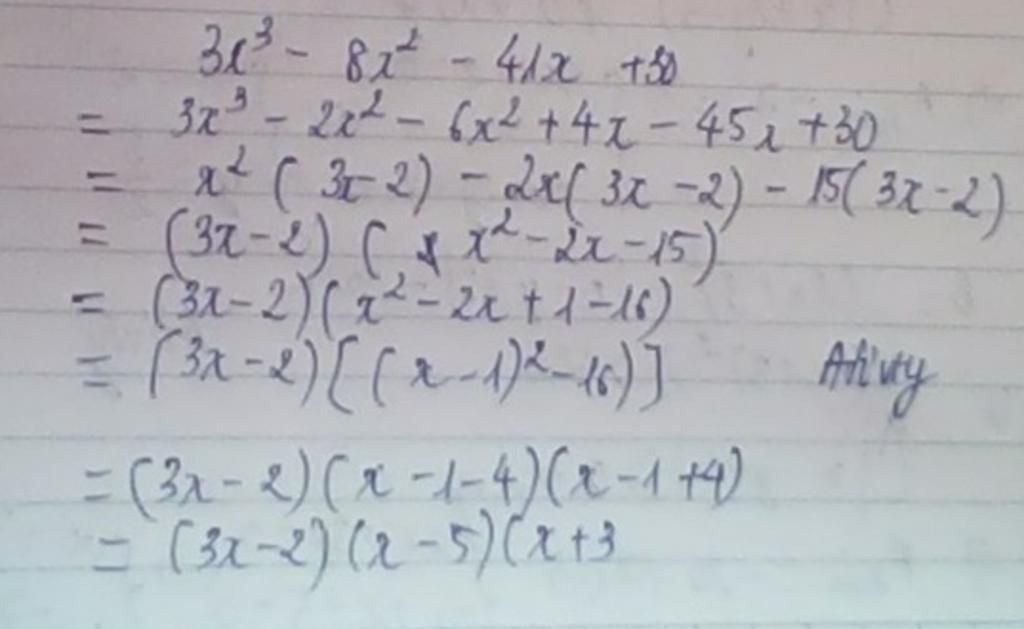 3x³ - 8x² - 41x +30
= 3x³ - 2x² - 6x² + 4x - 45x + 30
= x² ( 3x-2) - 2x( 3x -2) - 15( 3x-2)
= (3x-2) ( x² - 2x - 15)
= (3x-2)(x² - 2x + 1 - 16)
= (3x-2)[( x - 1)² - 16)]
= (3x - 2)( x - 1 - 4)(x - 1 + 4)
= (3x-2)(x - 5)(x+3